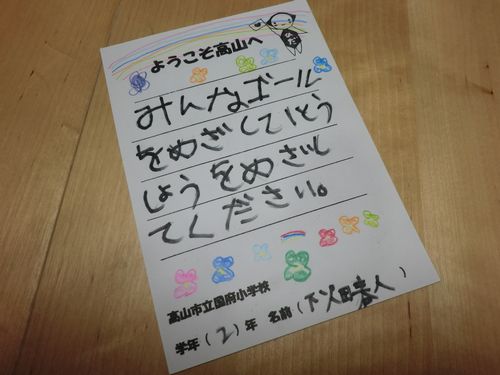 ようこそ高山へ
みんなゴール
をめざして1とう
しょうをめざし
てください。
高山市立国府小学校
学年(2)年 名前(